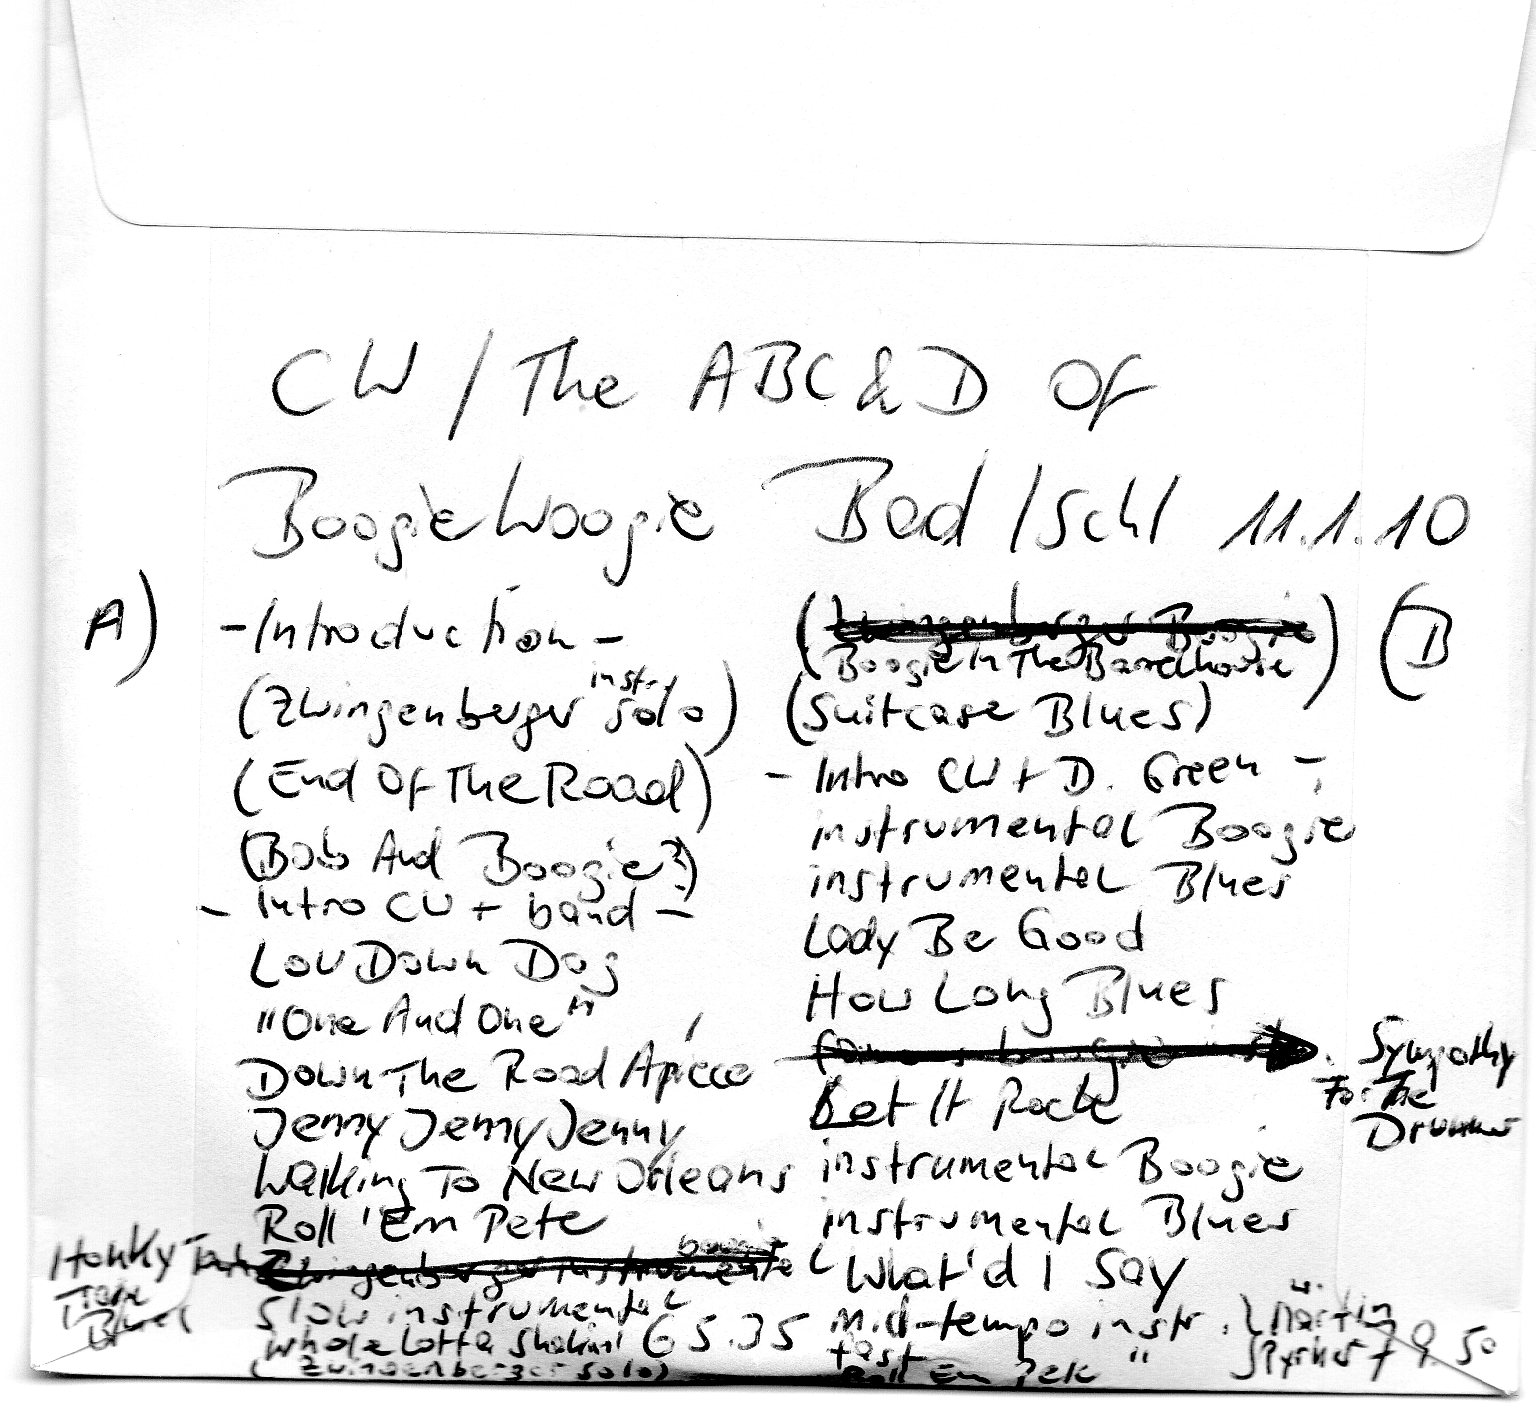 CW / The ABC & D Of
Boogie Woogie Bad Ischl 11.1.10
A)
- Introduction -
(Zwingenberger instr. solo)
(End Of The Road)
(Bob And Boogie?)
- Intro CW + band -
Low Down Dog
"One And One"
Down The Road Apiece
Jenny Jenny Jenny
Walking To New Orleans
Roll 'Em Pete
Zwingenberger instrumental boogie
Honky Tonk Train Blues
Slow instrumental
Whole Lotta Shakin' 65.35
(Zwingenberger solo)
(B
(Zwingenberger Boogie)
(Boogie In The Barrelhouse)
(Suitcase Blues)
- Intro CW + D. Green -
instrumental Boogie
instrumental Blues
Lady Be Good
How Long Blues
Sympathy
For The
Drummer
Bet It Rock
instrumental Boogie
instrumental Blues
What'd I Say
Mid-tempo instr. } w. Martin
fast " Pyrker 79.50
Roll Em Pete